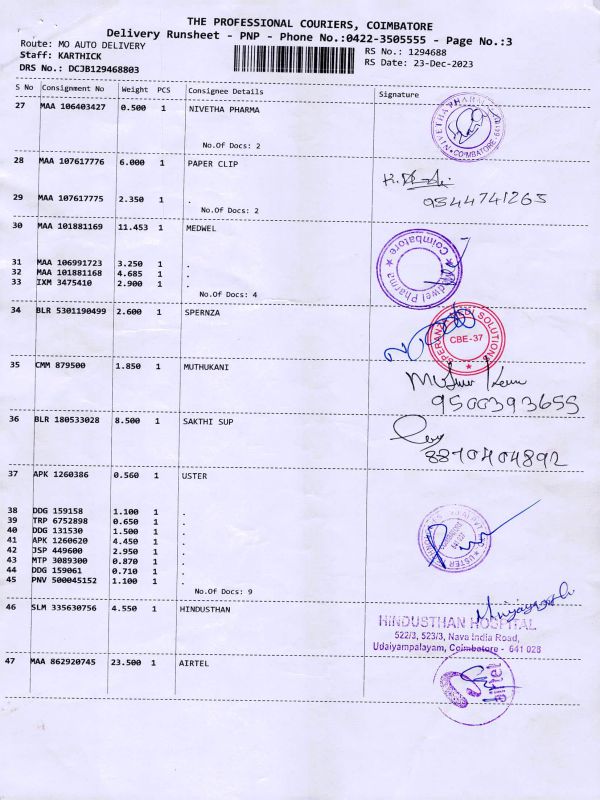 THE PROFESSIONAL COURIERS, COIMBATORE
Delivery Runsheet - PNP - Phone No.:0422-3505555 - Page No.:3
Route: MO AUTO DELIVERY
RS No.: 1294688
Staff: KARTHICK
RS Date: 23-Dec-2023
DRS No.: DCJB129468803
S No Consignment No Weight PCS Consignee Details Signature
27 MAA 106403427 0.500 1 NIVETHA PHARMA
NIVETHA PHARMA COIMBATORE
No.Of Docs: 2
28 MAA 107617776 6.000 1 PAPER CLIP
29 MAA 107617775 2.350 1 .
9544741265
No.Of Docs: 2
30 MAA 101881169 11.453 1 MEDWEL
Medwel Pharma ★ Coimbatore ★
31 MAA 106991723 3.250 1 .
32 MAA 101881168 4.685 1 .
33 IXM 3475410 2.900 1 .
No.Of Docs: 4
34 BLR 5301190499 2.600 1 SPERNZA
SOLUTIONS
CBE-37
35 CMM 879500 1.850 1 MUTHUKANI
9500393655
36 BLR 180533028 8.500 1 SAKTHI SUP
8870404892
37 APK 1260386 0.560 1 USTER
38 DDG 159158 1.100 1 .
39 TRP 6752898 0.650 1 .
40 DDG 131530 1.500 1 .
41 APK 1260620 4.450 1 .
42 JSP 449600 2.950 1 .
43 MTP 3089300 0.870 1 .
44 DDG 159061 0.710 1 .
45 PNV 500045152 1.100 1 .
USTER
No.Of Docs: 9
46 SLM 335630756 4.550 1 HINDUSTHAN
HINDUSTHAN HOSPITAL
522/3, 523/3, Nava India Road,
Udaiyampalayam, Coimbatore - 641 028
47 MAA 862920745 23.500 1 AIRTEL
airtel